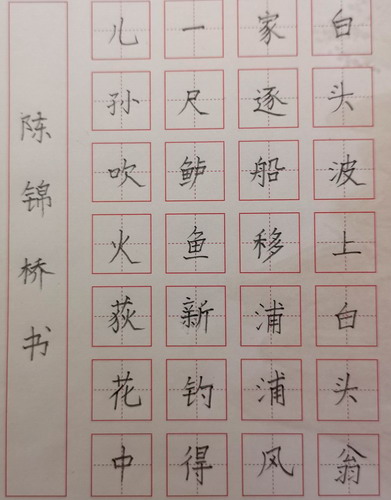 白头波上白头翁
家逐船移浦浦风
一尺鲈鱼新钓得
儿孙吹火荻花中
陈锦桥书